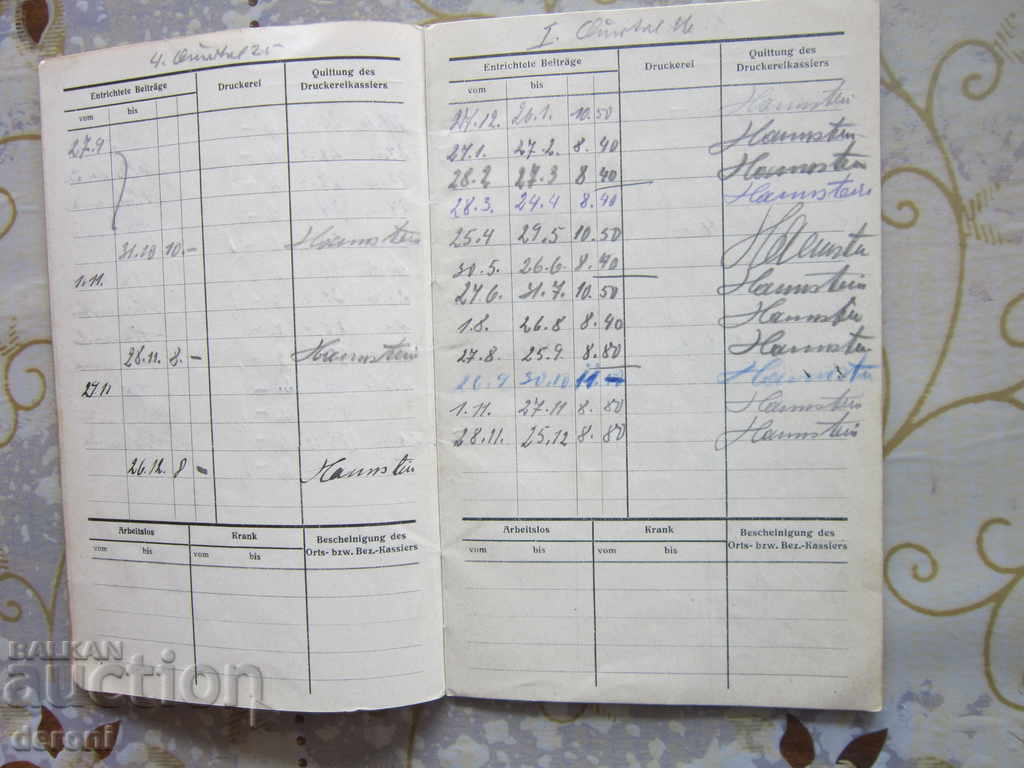 4. Quartal 25
Entrichtete Beiträge Druckerei Quittung des Druckereikassiers
vom bis
27.9
31.10 10.– Hannstein
1.11.
28.11. 8.– Hannstein
27.11
26.12. 8 – Hannstein
Arbeitslos Krank Bescheinigung des Orts- bzw. Bez.-Kassiers
vom bis vom bis
I. Quartal 26
Entrichtete Beiträge Druckerei Quittung des Druckereikassiers
vom bis
27.12. 26.1. 10.50 Hannstein
27.1. 27.2. 8.40 Hannstein
28.2 27.3 8 40 Hannstein
28.3. 24.4 8.40 Hannstein
25.4 29.5 10.50 Hannstein
30.5. 26.6. 8.40 Hannstein
27.6. 31.7. 10.50 Hannstein
1.8. 26.8 8.40 Hannstein
27.8. 25.9 8.80 Hannstein
26.9 30.10 Hannstein
1.11. 27.11 8.80 Hannstein
28.11. 25.12 8.80 Hannstein
Arbeitslos Krank Bescheinigung des Orts- bzw. Bez.-Kassiers
vom bis vom bis
BALKAN
auction
deroni